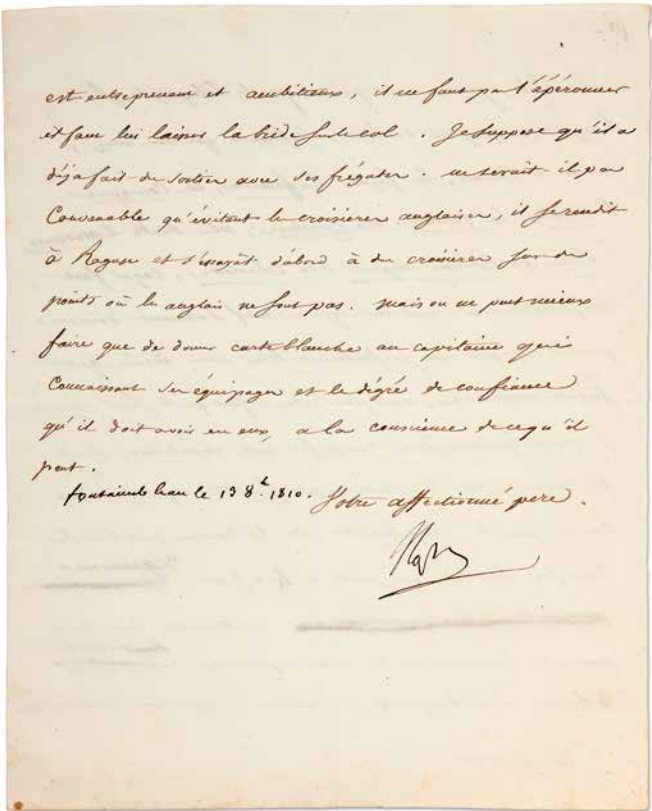 est entreprenant et ambitieux, il ne faut pas l'épéronner
et faut lui laisser la bride sur le col. Je suppose qu'il a
déja fait des sorties avec ses frégates. ne serait-il pas
Convenable qu'évitant les croisieres anglaises, il se rendit
à Raguse et s'essayât d'abord à des croisieres sur des
points où les anglais ne sont pas. mais on ne peut mieux
faire que de donner carte blanche au capitaine qui
Connaissant ses équipages et le dégré de confiance
qu'il doit avoir en eux, a la conscience de ce qu'il
peut.
fontainebleau le 13 8.b 1810. Votre affectionné pere.
Nap